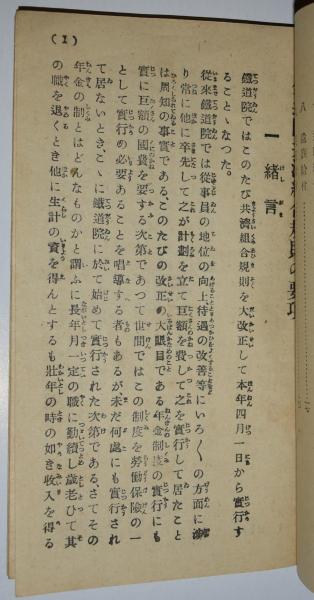 一 緒言
鐵道院ではこのたび共濟組合規則を大改正して本年四月一日から實行す
ることゝなつた。
從來鐵道院では從事員の地位の向上待遇の改善等にいろ〱の方面に渉
り常に他に卒先して之が計劃を立て巨額を費して之を實行して居たこと
は周知の事實である、このたびの改正の大眼目である年金制度の實行にも
實に巨額の國費を要する次第であつて世間ではこの制度を勞働保險の一
として實行の必要あることを唱導する者もあるが未だ何處にも實行され
て居ないとき、こゝに鐵道院に於て始めて實行された次第である、さてその
年金の制とはどんなものかと謂ふに長年月一定の職に勤續し歲老ひて其
の職を退くとき他に生計の資を得んとするも壯年の時の如き收入を得る
(1)